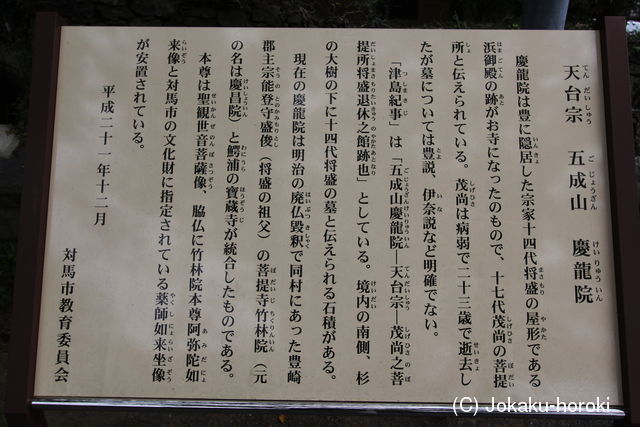 天台宗　五成山　慶龍院
慶龍院は豊に隠居した宗家十四代将盛の屋形である
浜御殿の跡がお寺になったもので、十七代茂尚の菩提
所と伝えられている。茂尚は病弱で二十三歳で逝去し
たが墓については豊説、伊奈説など明確でない。
「津島紀事」は「五成山慶龍院―天台宗―茂尚之菩
提所将盛退休之館跡也」としている。境内の南側、杉
の大樹の下に十四代将盛の墓と伝えられる石積がある。
現在の慶龍院は明治の廃仏毀釈で同村にあった豊崎
郡主宗能登守盛俊（将盛の祖父）の菩提寺竹林院（元
の名は慶昌院）と鰐浦の寶蔵寺が統合したものである。
本尊は聖観世音菩薩像、脇仏に竹林院本尊阿弥陀如
来像と対馬市の文化財に指定されている薬師如来坐像
が安置されている。
平成二十一年十二月
対馬市教育委員会
(C) Jokaku-horoki